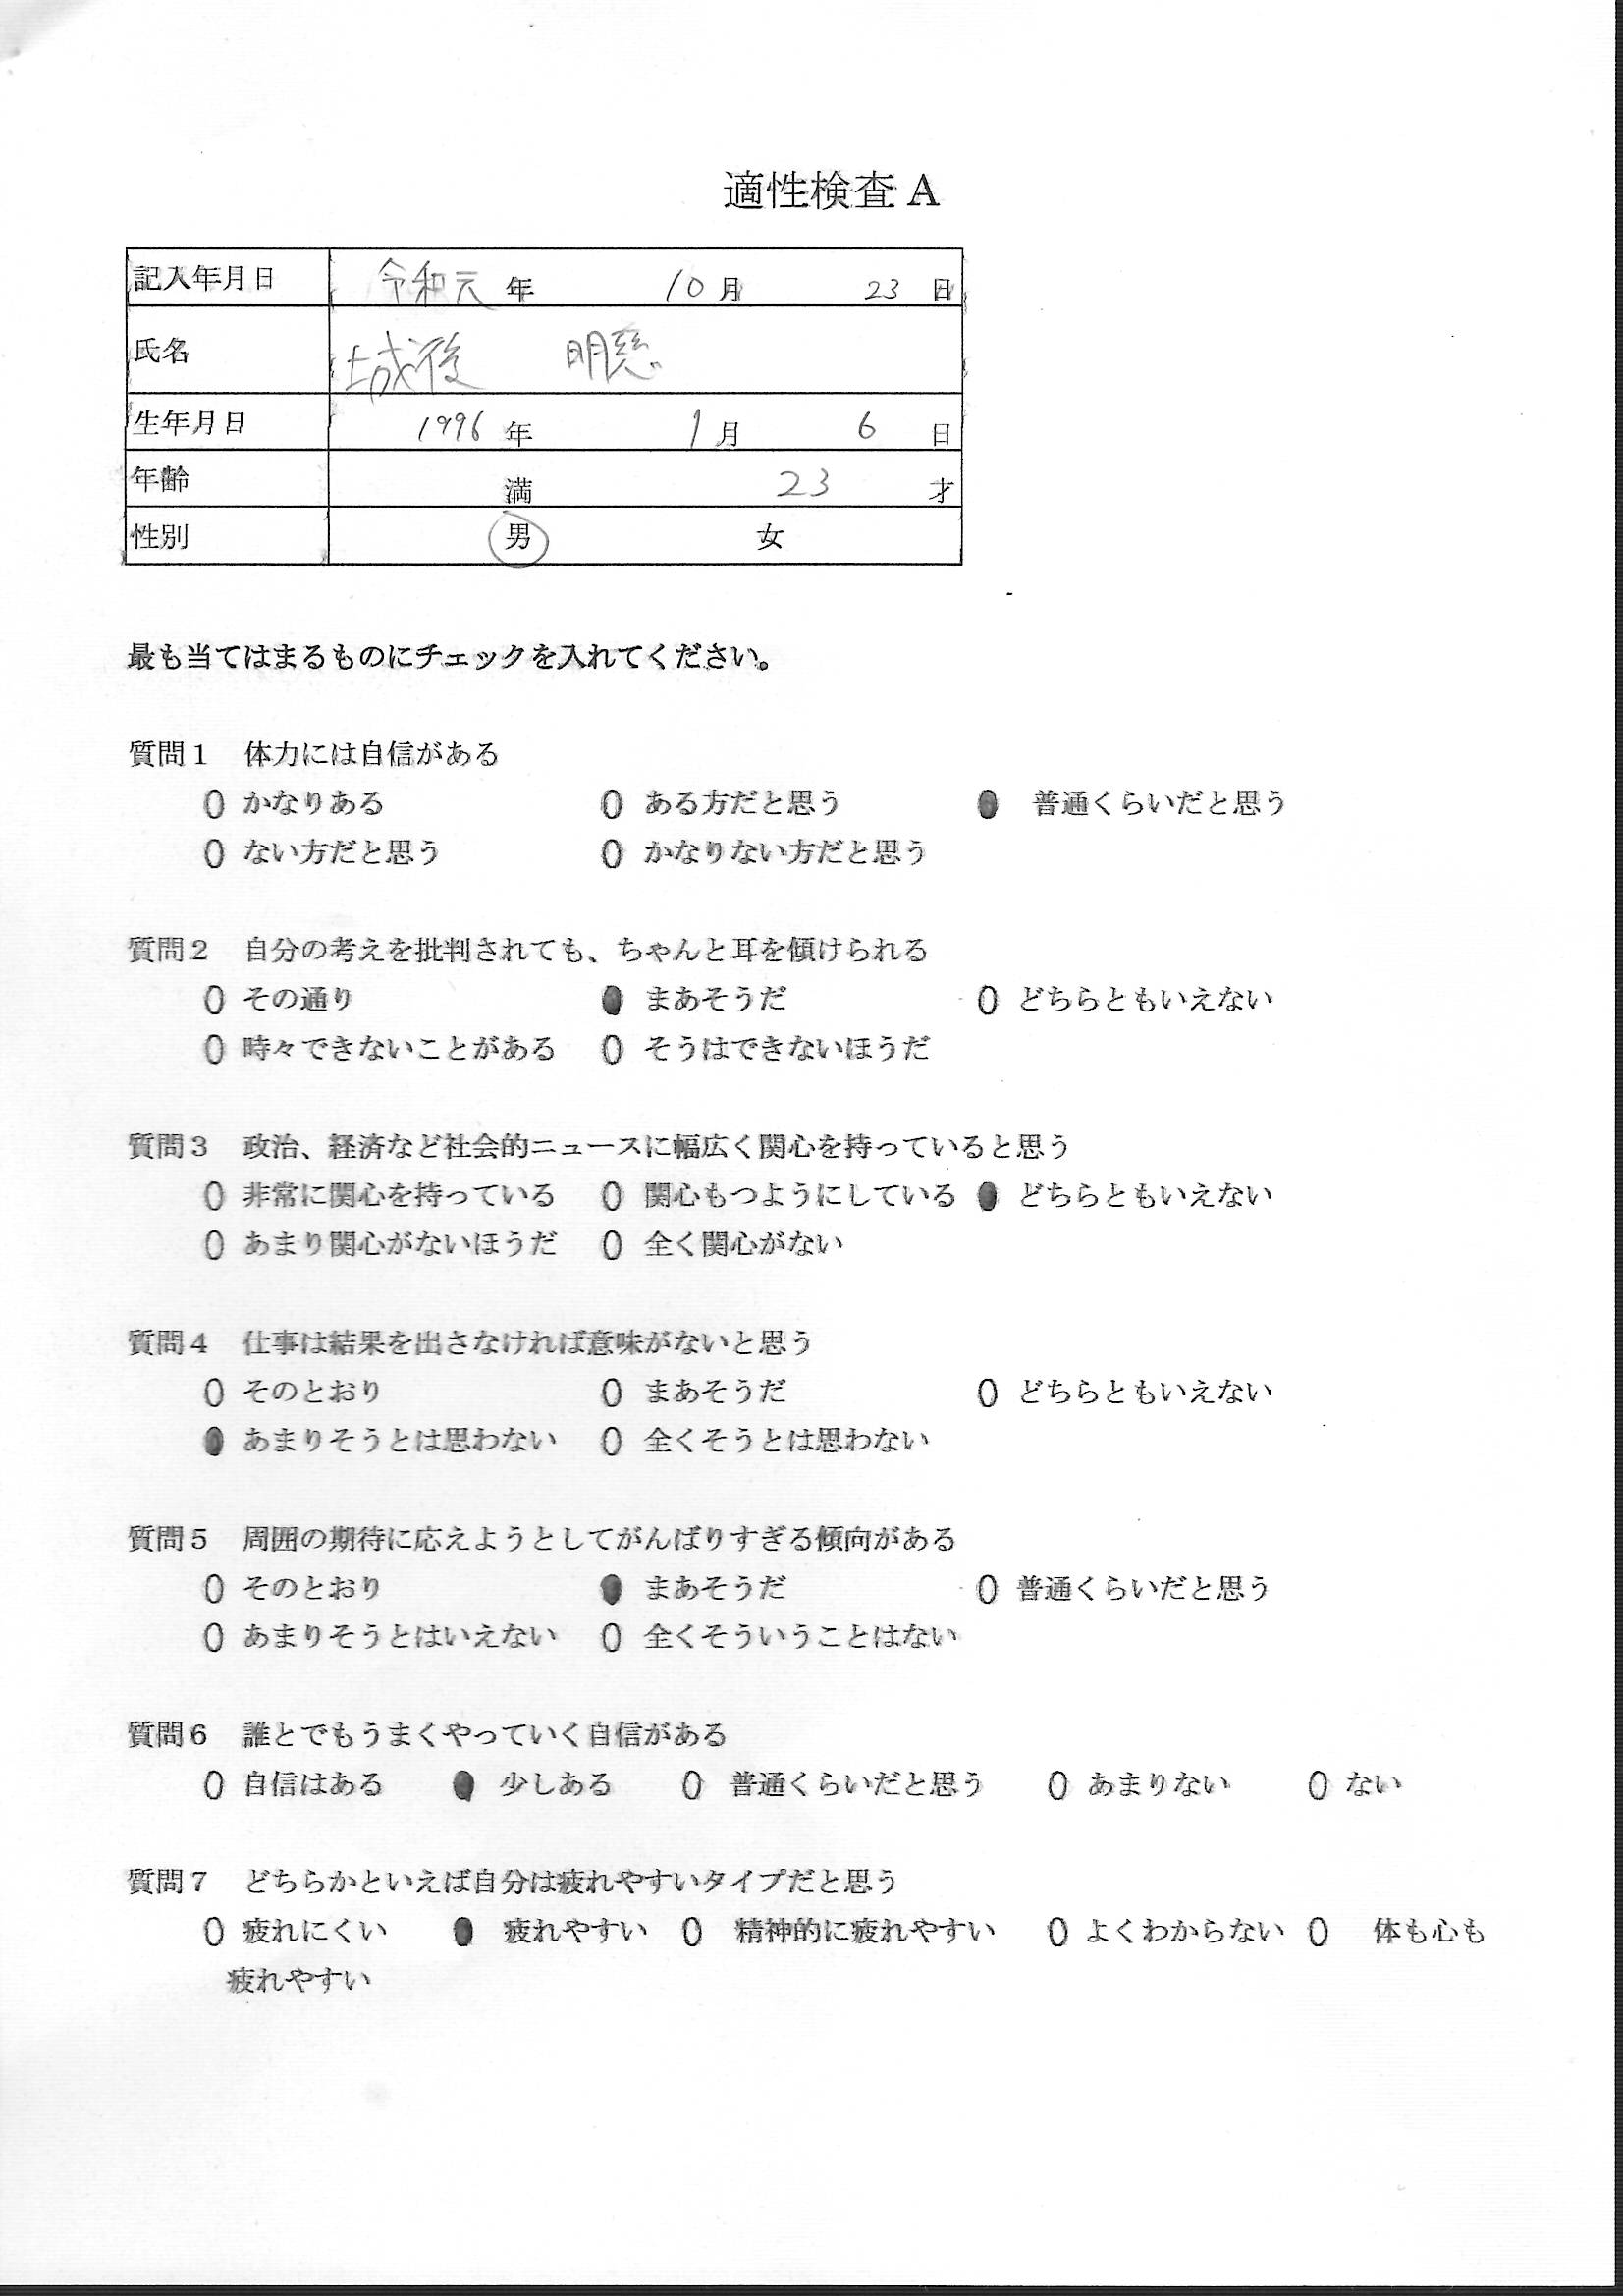 適性検査 A
記入年月日 令和元 年 10 月 23 日
氏名 城後 明慈
生年月日 1996 年 1 月 6 日
年齢 満 23 才
性別 男 女
最も当てはまるものにチェックを入れてください。
質問１ 体力には自信がある
かなりある ある方だと思う 普通くらいだと思う
ない方だと思う かなりない方だと思う
質問２ 自分の考えを批判されても、ちゃんと耳を傾けられる
その通り まあそうだ どちらともいえない
時々できないことがある そうはできないほうだ
質問３ 政治、経済など社会的ニュースに幅広く関心を持っていると思う
非常に関心を持っている 関心もつようにしている どちらともいえない
あまり関心がないほうだ 全く関心がない
質問４ 仕事は結果を出さなければ意味がないと思う
そのとおり まあそうだ どちらともいえない
あまりそうとは思わない 全くそうとは思わない
質問５ 周囲の期待に応えようとしてがんばりすぎる傾向がある
そのとおり まあそうだ 普通くらいだと思う
あまりそうとはいえない 全くそういうことはない
質問６ 誰とでもうまくやっていく自信がある
自信はある 少しある 普通くらいだと思う あまりない ない
質問７ どちらかといえば自分は疲れやすいタイプだと思う
疲れにくい 疲れやすい 精神的に疲れやすい よくわからない 体も心も
疲れやすい